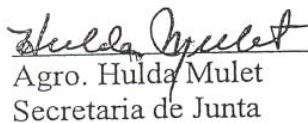 Hulda Mulet
Agro. Hulda Mulet
Secretaria de Junta